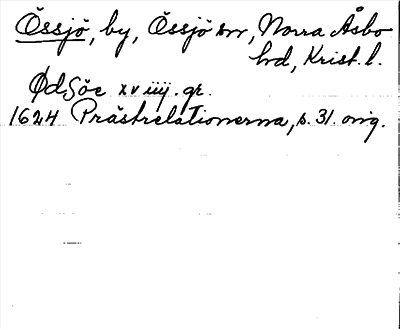 Össjö, by, Össjö sn, Norra Åsbo
hd, Krist. l.
ØdSöe xv iiij. gr.
1624 Prästrelationerna, s. 31. orig.